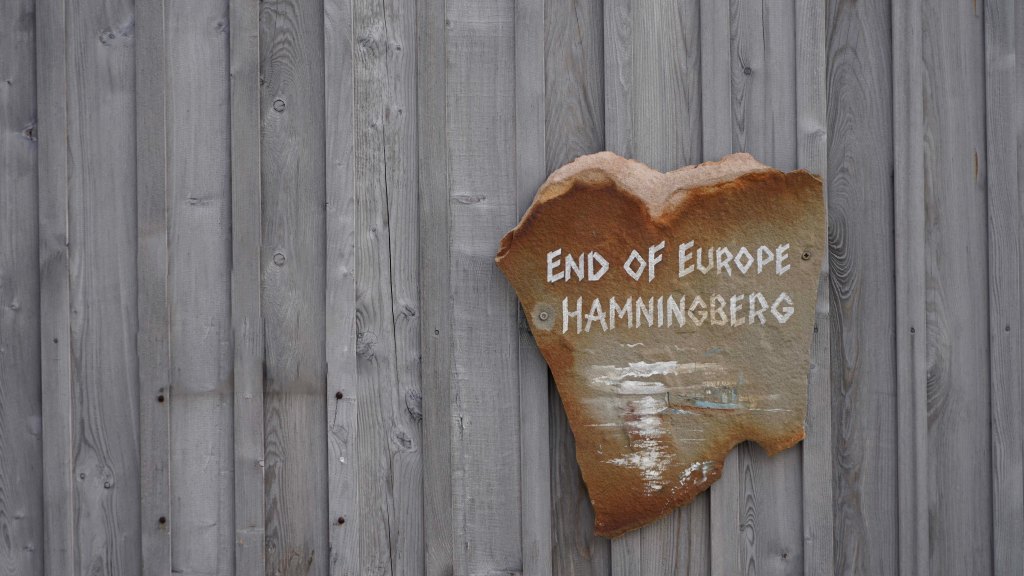 END OF EUROPE
HAMNINGBERG